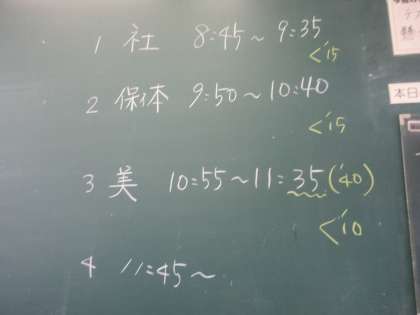 1 社 8:45～9:35
<'15
2 保体 9:50～10:40
<'15
3 美 10:55～11:35('40)
<'10
4 11:45～
本日